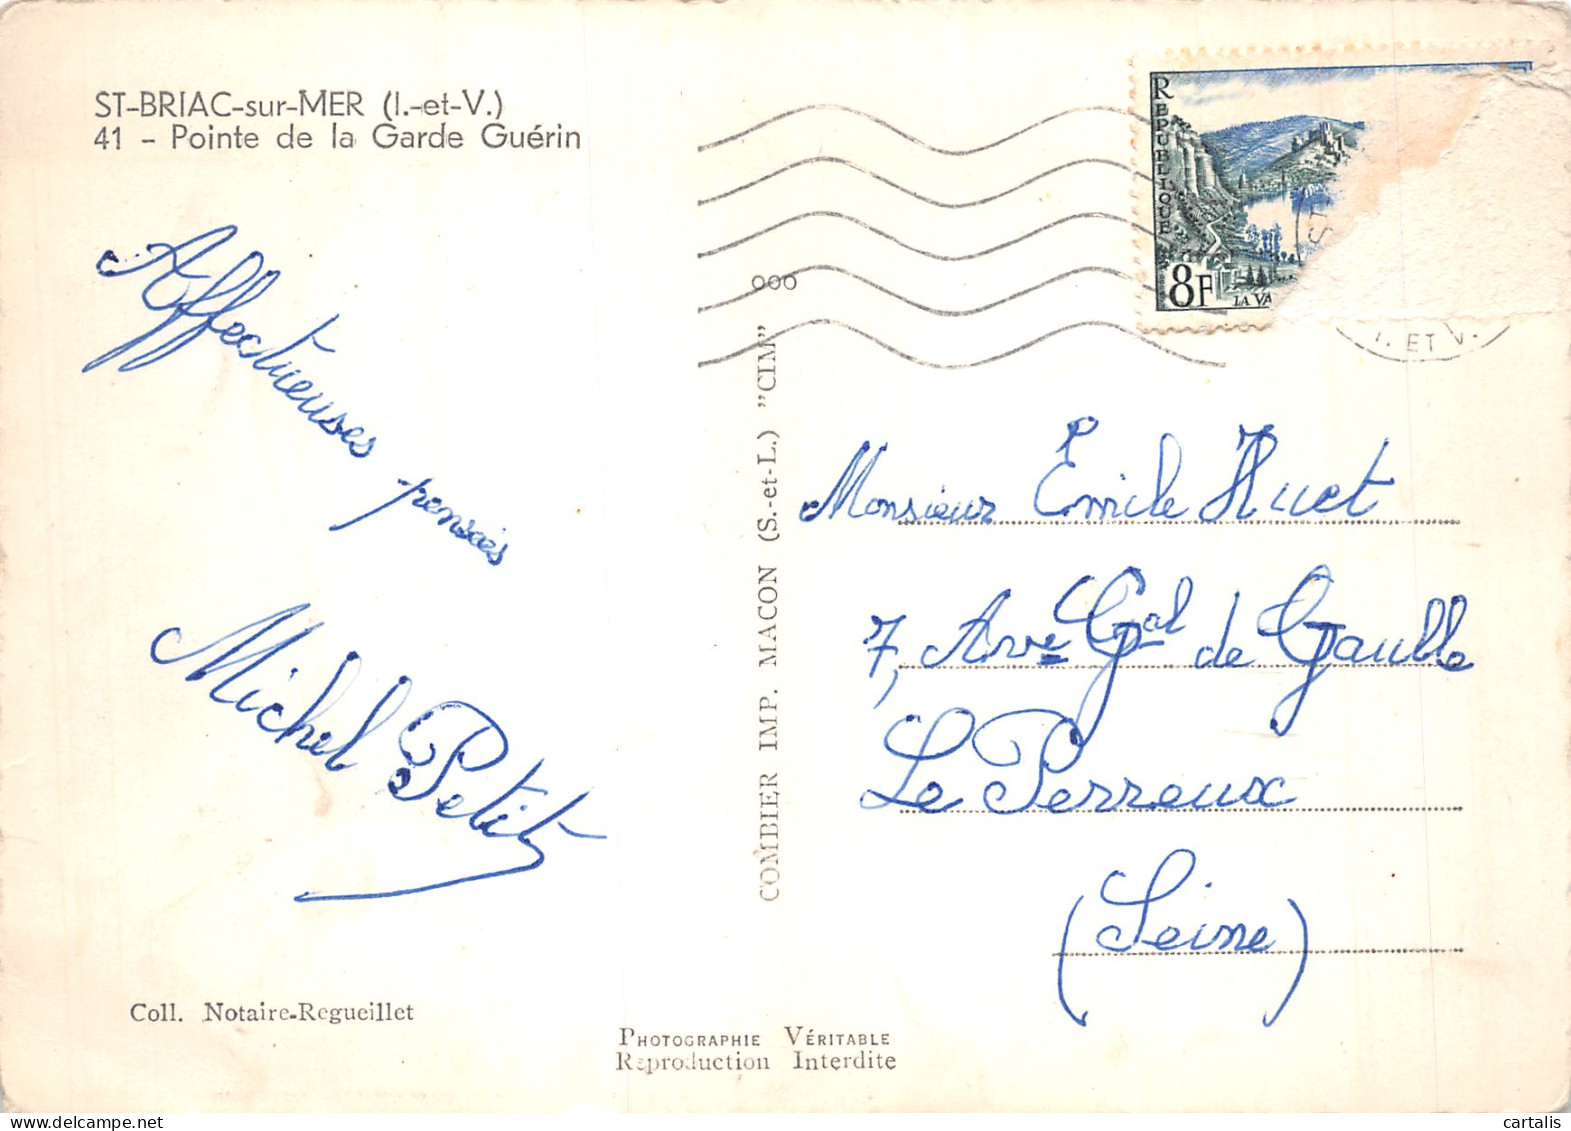 ST-BRIAC-sur-MER (I.-et-V.)
41 - Pointe de la Garde Guérin
Affectueuses
pensées
Michel Petit
Coll. Notaire-Regueillet
PHOTOGRAPHIE VÉRITABLE
Reproduction Interdite
COMBIER IMP. MACON (S.-et-L.) "CIM"
000
REPUBLIQUE
8F
LA VA
ST
I. ET V.
Monsieur Emile Huet
7, Ave Gal de Gaulle
Le Perreux
(Seine)
cartalis
delcampe.net